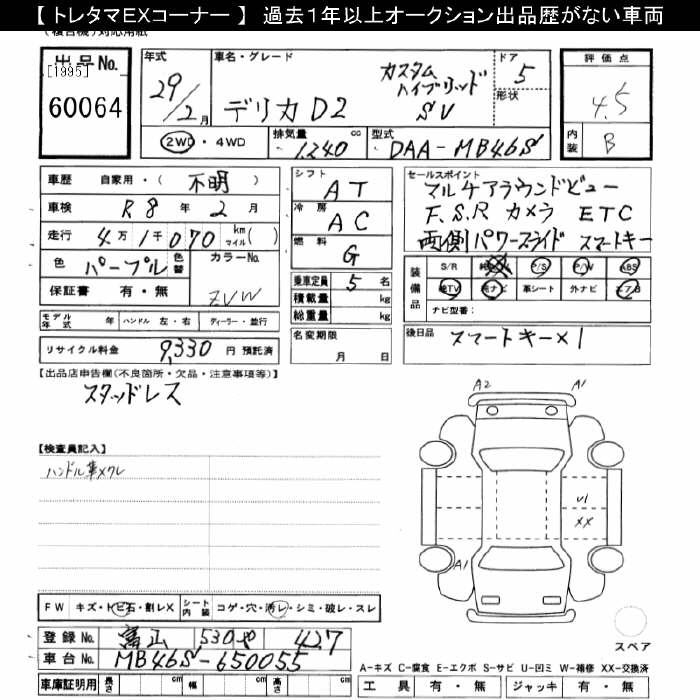 【 トレタマEXコーナー 】 過去１年以上オークション出品歴がない車両
出品No.
[1995]
60064
年式
29/2月
車名・グレード
デリカD2
カスタム
ハイブリッド
SV
ドア
5
形状
評価点
4.5
内装
B
2WD・4WD
排気量
1240 cc
型式
DAA-MB46S
車歴 自家用・( 不明 )
車検 R8年 2月
走行 4万1千070 km マイル( )
色 パープル 色替
カラーNo.
ZVW
保証書 有・無
シフト AT
冷房 AC
燃料 G
乗車定員 5 名
積載量 kg
総重量 kg
セールスポイント
マルチアラウンドビュー
F.S.R カメラ ETC
両側パワースライド スマートキー
装備品
S/R P/S P/W ABS
純TV 純ナビ 革シート 外ナビ エアB
ナビ型番:
モデル年式 年 ハンドル 左・右 ディーラー・並行
リサイクル料金 9,330 円 預託済
名変期限
月 日
後日品 スマートキー×1
【出品店申告欄(不良箇所・欠品・注意事項等)】
スタッドレス
A2 A1
【検査員記入】
U1
XX
A1
FW キズ・トビ石・割レX シート内装 コゲ・穴・汚レ・シミ・破レ・スレ
登録No. 富山 530 や 427
車台No. MB46S-650055
車庫証明用 長さ cm 幅 cm 高さ cm
スペア
A-キズ C-腐食 E-エクボ S-サビ U-凹ミ W-補修 XX-交換済
工具 有・無 ジャッキ 有・無